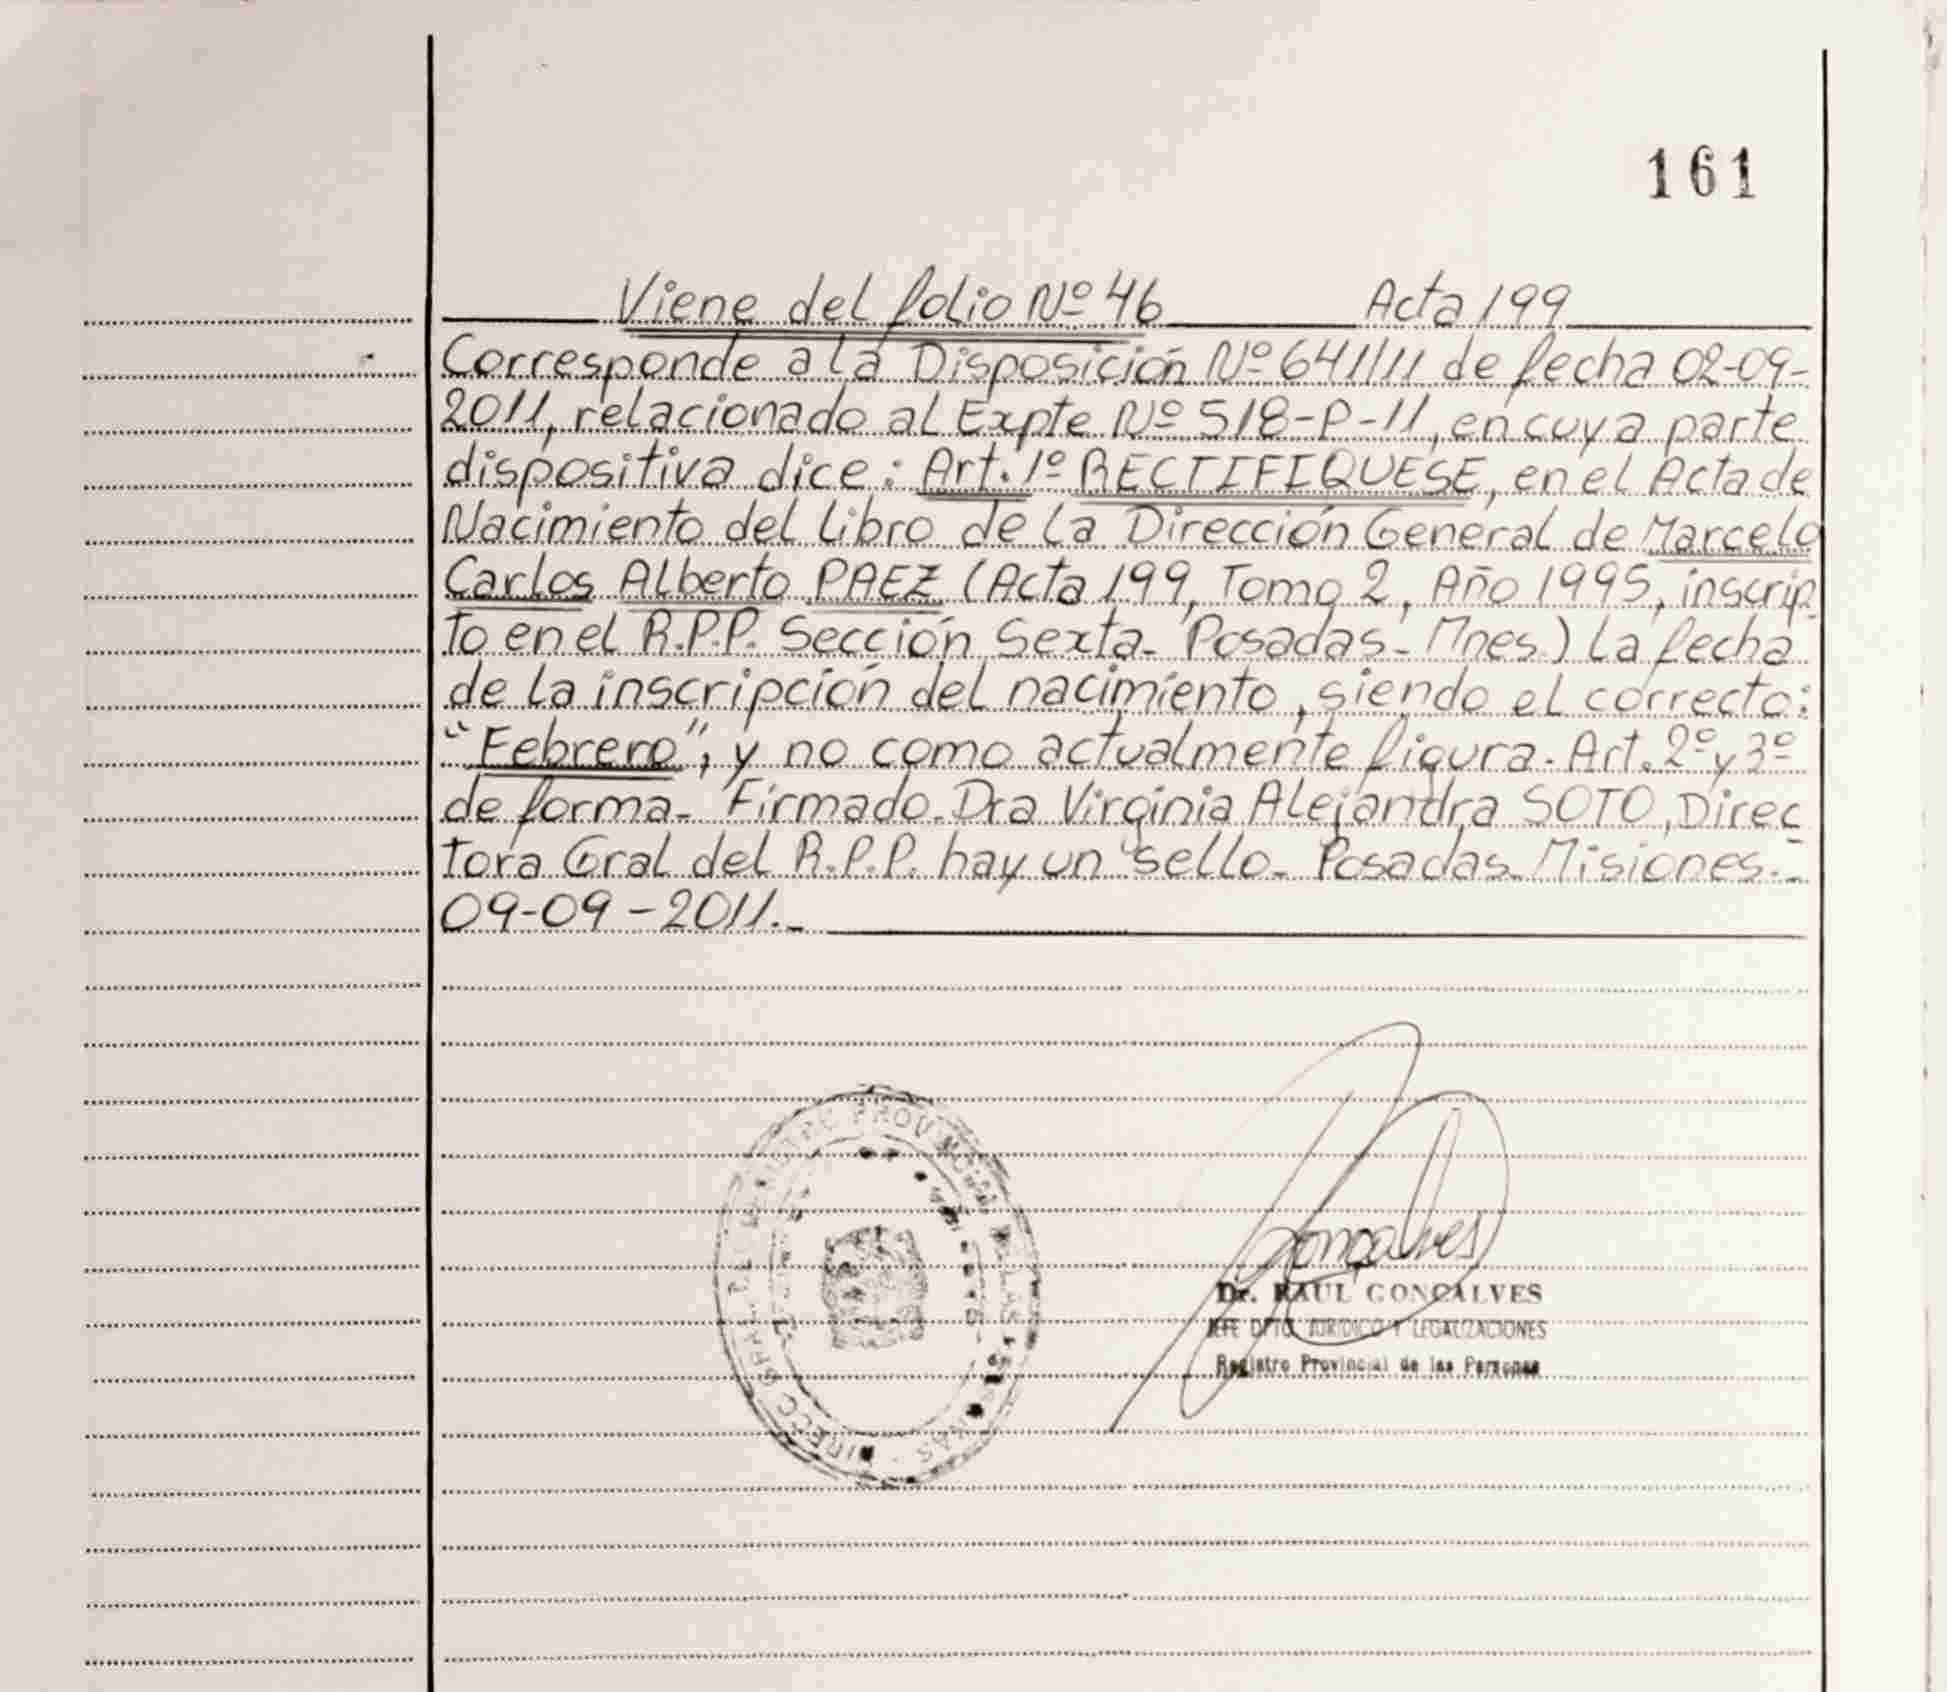 161
Viene del folio Nº 46 Acta 199
Corresponde a la Disposición Nº 641/11 de fecha 02-09-
2011, relacionado al Expte Nº 518-P-11, en cuya parte
dispositiva dice: Art. 1º RECTIFIQUESE, en el Acta de
Nacimiento del Libro de la Dirección General de Marcelo
Carlos Alberto PAEZ (Acta 199, Tomo 2, Año 1995, inscrip-
to en el R.P.P. Sección Sexta- Posadas- Mnes.) la fecha
de la inscripción del nacimiento, siendo el correcto:
"Febrero", y no como actualmente figura. Art. 2º y 3º
de forma- Firmado- Dra Virginia Alejandra SOTO, Direc
tora Gral del R.P.P. hay un sello- Posadas- Misiones.-
09-09-2011.-
Gonçalves
Dr. RAUL GONÇALVES
JEFE DPTO. JURIDICO Y LEGALIZACIONES
Registro Provincial de las Personas